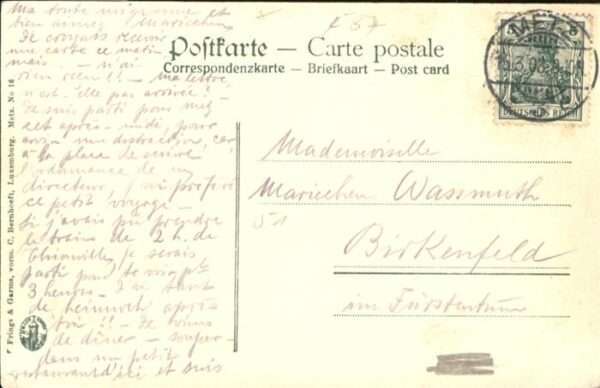 Ma toute mignonne et
bien aimée Mariechen
Je croyais recevoir
une carte ce matin
mais - n'ai
rien reçu!! - Ma lettre
n'est-elle pas arrivée! -
Je suis parti pour Metz
cet après-midi, pour
avoir une distraction, car
à la place de suivre
l'ordonnance de
directeur, j'ai préféré
ce petit voyage -
Si j'avais pu prendre
le train de 2 h. de
Thionville, je serais
parti pour te
3 heures -
de après-
- Je viens
de dîner - souper -
dans un petit
restaurant d'ici et suis
Postkarte — Carte postale
Correspondenzkarte – Briefkaart – Post card
METZ
DEUTSCHES REICH
Mademoiselle
Mariechen Wassmuth
Birkenfeld
im Fürstentum
Frings & Garms, vorm. C. Bernhoeft, Luxemburg. Metz. No 16